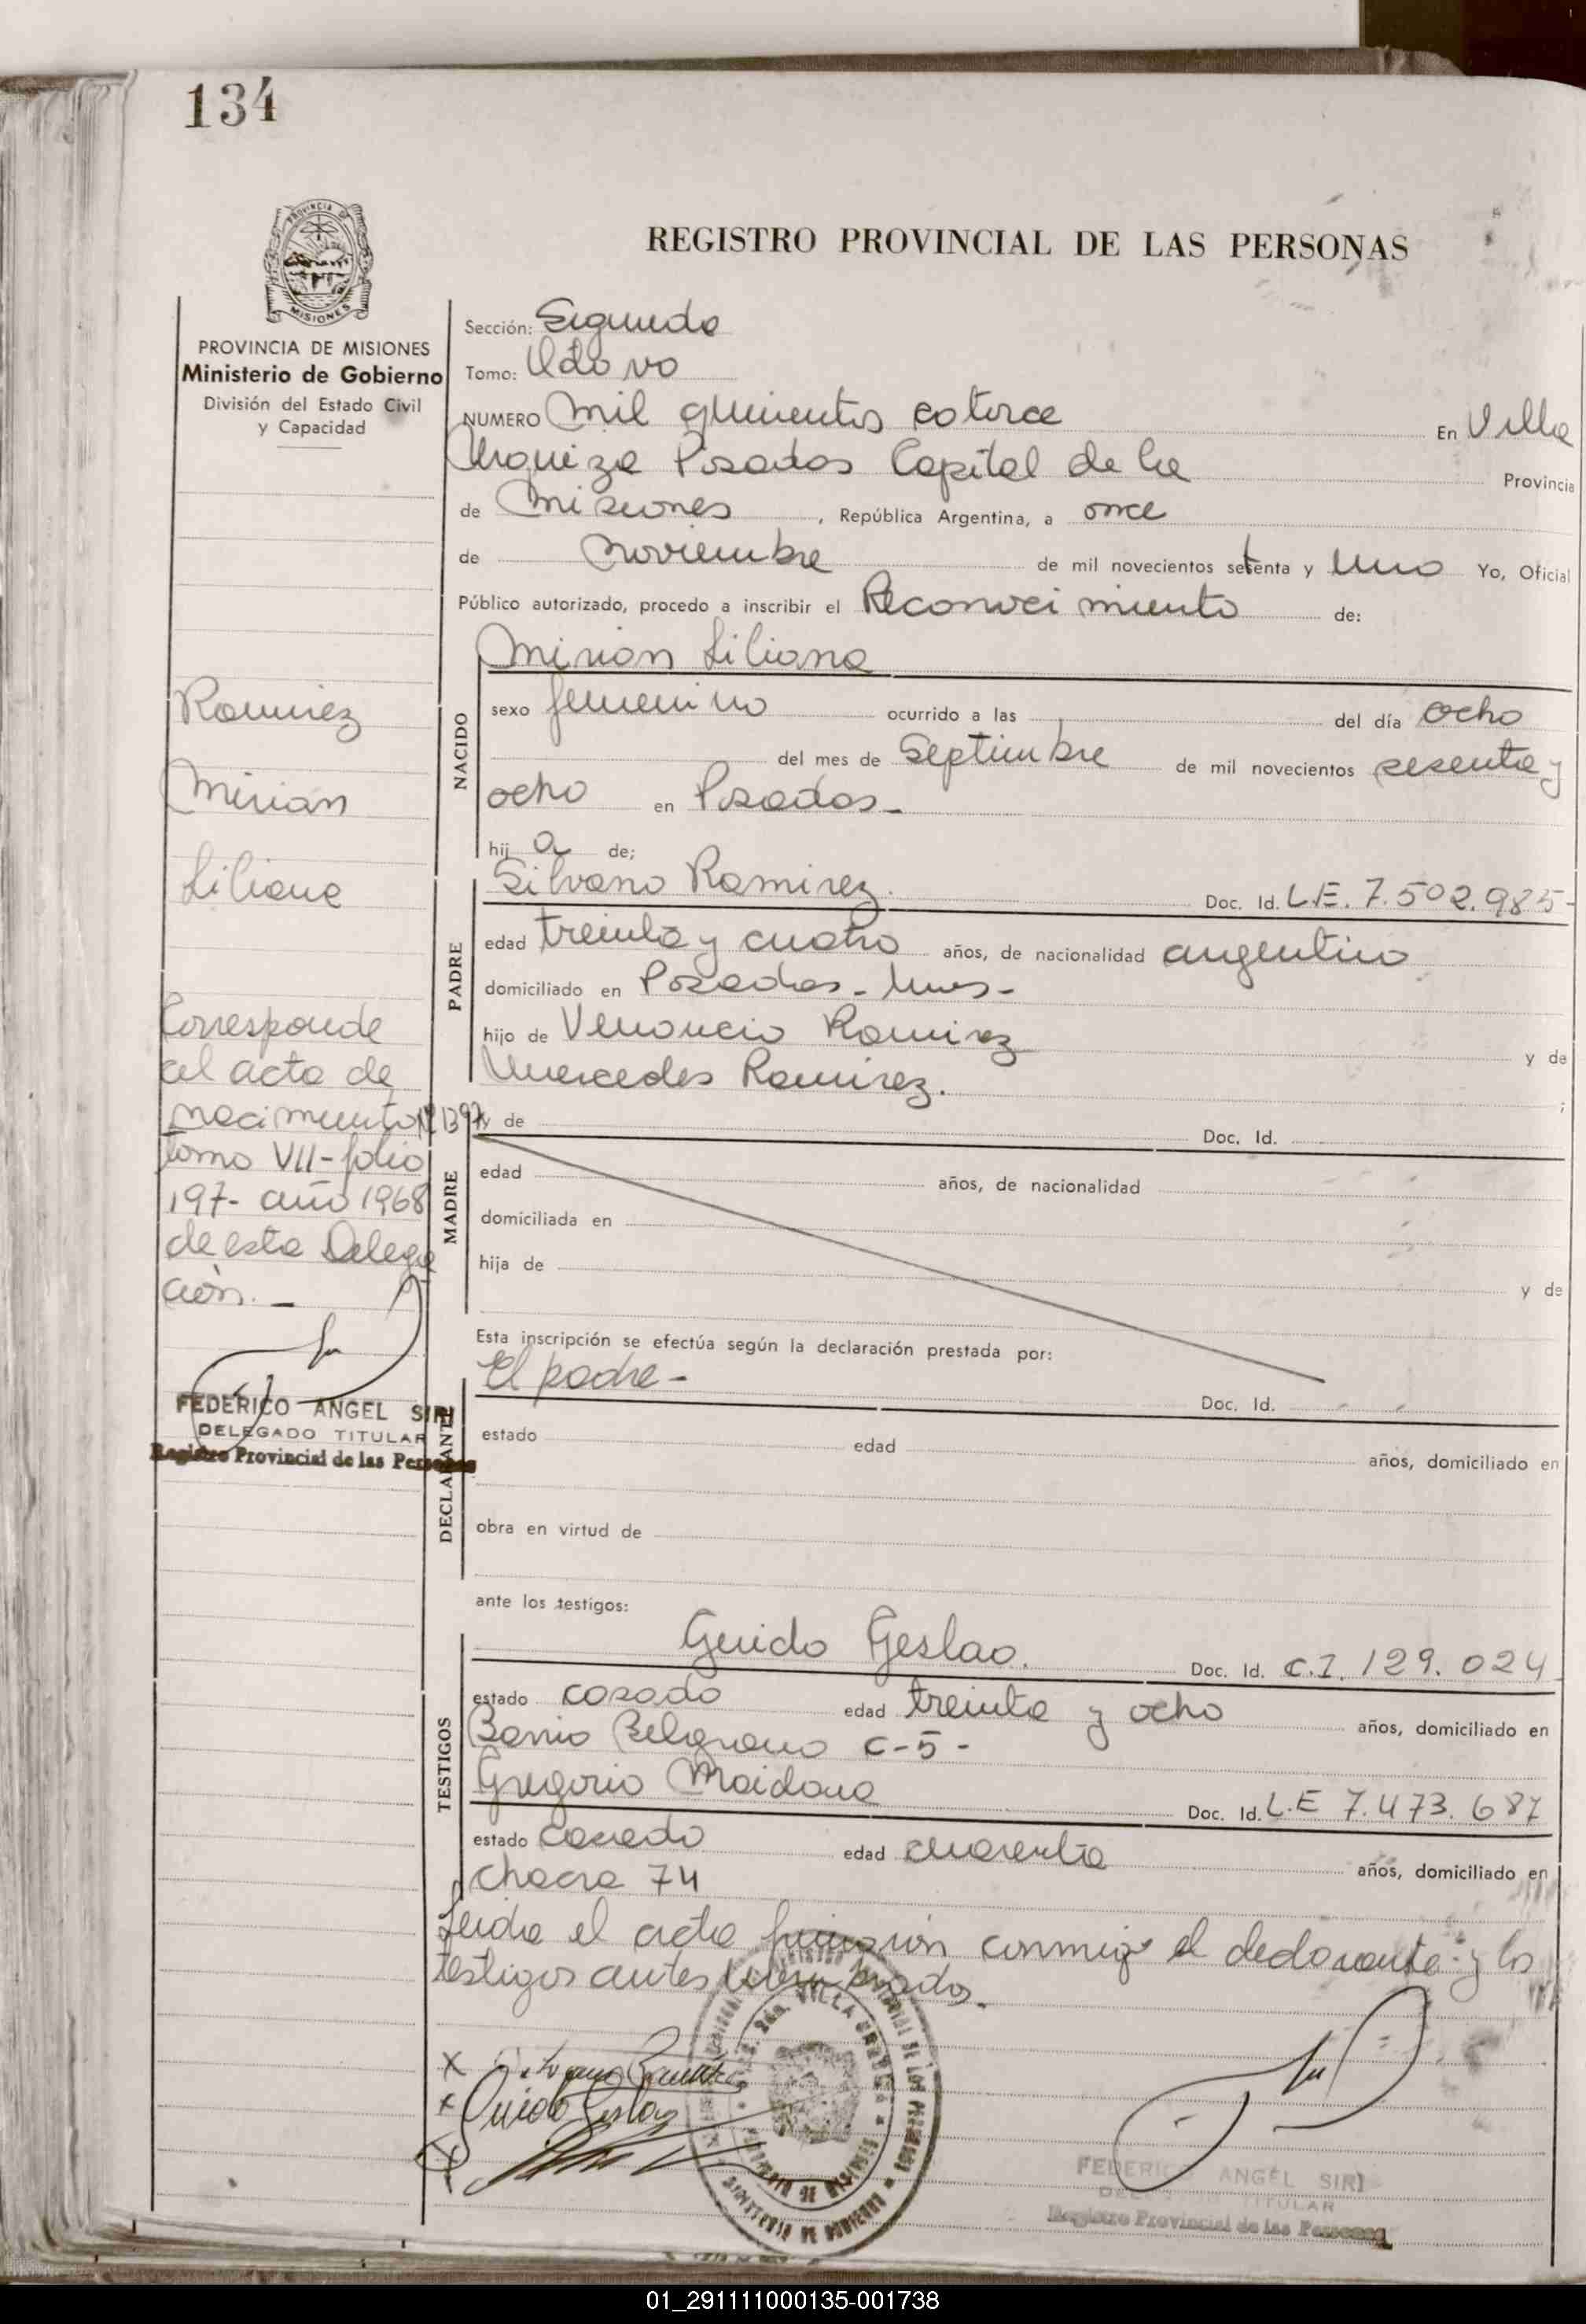 134
PROVINCIA DE
MISIONES
REGISTRO PROVINCIAL DE LAS PERSONAS
PROVINCIA DE MISIONES
Ministerio de Gobierno
División del Estado Civil
y Capacidad
Sección: Segunda
Tomo: 8avo
NUMERO Mil quinientos catorce En Villa
Urquiza Posadas Capital de la Provincia
de Misiones, República Argentina, a once
de Noviembre de mil novecientos setenta y uno Yo, Oficial
Público autorizado, procedo a inscribir el Reconocimiento de:
Mirian Liliana
NACIDO
sexo femenino ocurrido a las del día ocho
del mes de Septiembre de mil novecientos sesenta y
ocho en Posadas-
hij a de;
PADRE
Silvano Ramirez. Doc. Id. L.E. 7.502.985-
edad treinta y cuatro años, de nacionalidad argentino
domiciliado en Posadas- Mnes-
hijo de Venancio Ramirez y de
Mercedes Ramirez. ;
MADRE
y de Doc. Id.
edad años, de nacionalidad
domiciliada en
hija de y de
Esta inscripción se efectúa según la declaración prestada por:
DECLARANTE
El padre- Doc. Id.
estado edad años, domiciliado en
obra en virtud de
ante los testigos:
TESTIGOS
Guido Geslao. Doc. Id. C.I. 129.024
estado casado edad treinta y ocho años, domiciliado en
Barrio Belgrano C-5-
Gregorio Maidana Doc. Id. L.E 7.473.687
estado casado edad cuarenta años, domiciliado en
Chacra 74
Leida el acta firmaron conmigo el declarante y los
testigos antes
Ramirez
Mirian
Liliana
Corresponde
al acta de
nacimiento Nº 1397
tomo VII-folio
197- año 1968
de esta Delega
ción.-
FEDERICO ANGEL SIRI
DELEGADO TITULAR
Registro Provincial de las Personas
Guido Geslao
FEDERICO ANGEL SIRI
DELEGADO TITULAR
Registro Provincial de las Personas
01_291111000135-001738